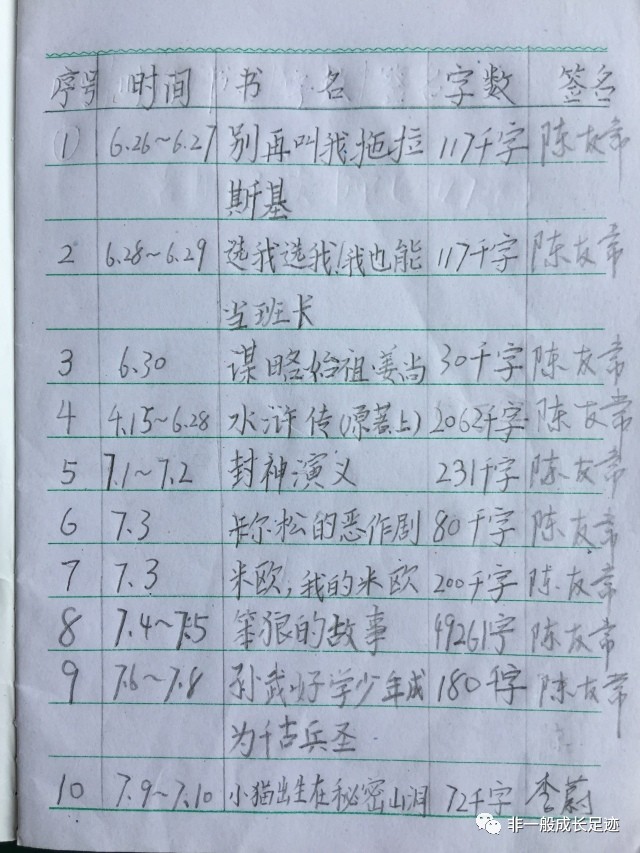 序号 时间 书 名 字数 签名
(1) 6.26~6.27 别再叫我拖拉 117千字 陈友常
斯基
2 6.28~6.29 选我选我!我也能 117千字 陈友常
当班长
3 6.30 谋略始祖姜尚 30千字 陈友常
4 4.15~6.28 水浒传(原著上) 2062千字 陈友常
5 7.1~7.2 封神演义 231千字 陈友常
6 7.3 卡尔松的恶作剧 80千字 陈友常
7 7.3 米欧,我的米欧 200千字 陈友常
8 7.4~7.5 笨狼的故事 49261字 陈友常
9 7.6~7.8 孙武好学少年成 180千字 陈友常
为千古兵圣
10 7.9~7.10 小猫出生在秘密山洞 72千字 李蔚
非一般成长足迹